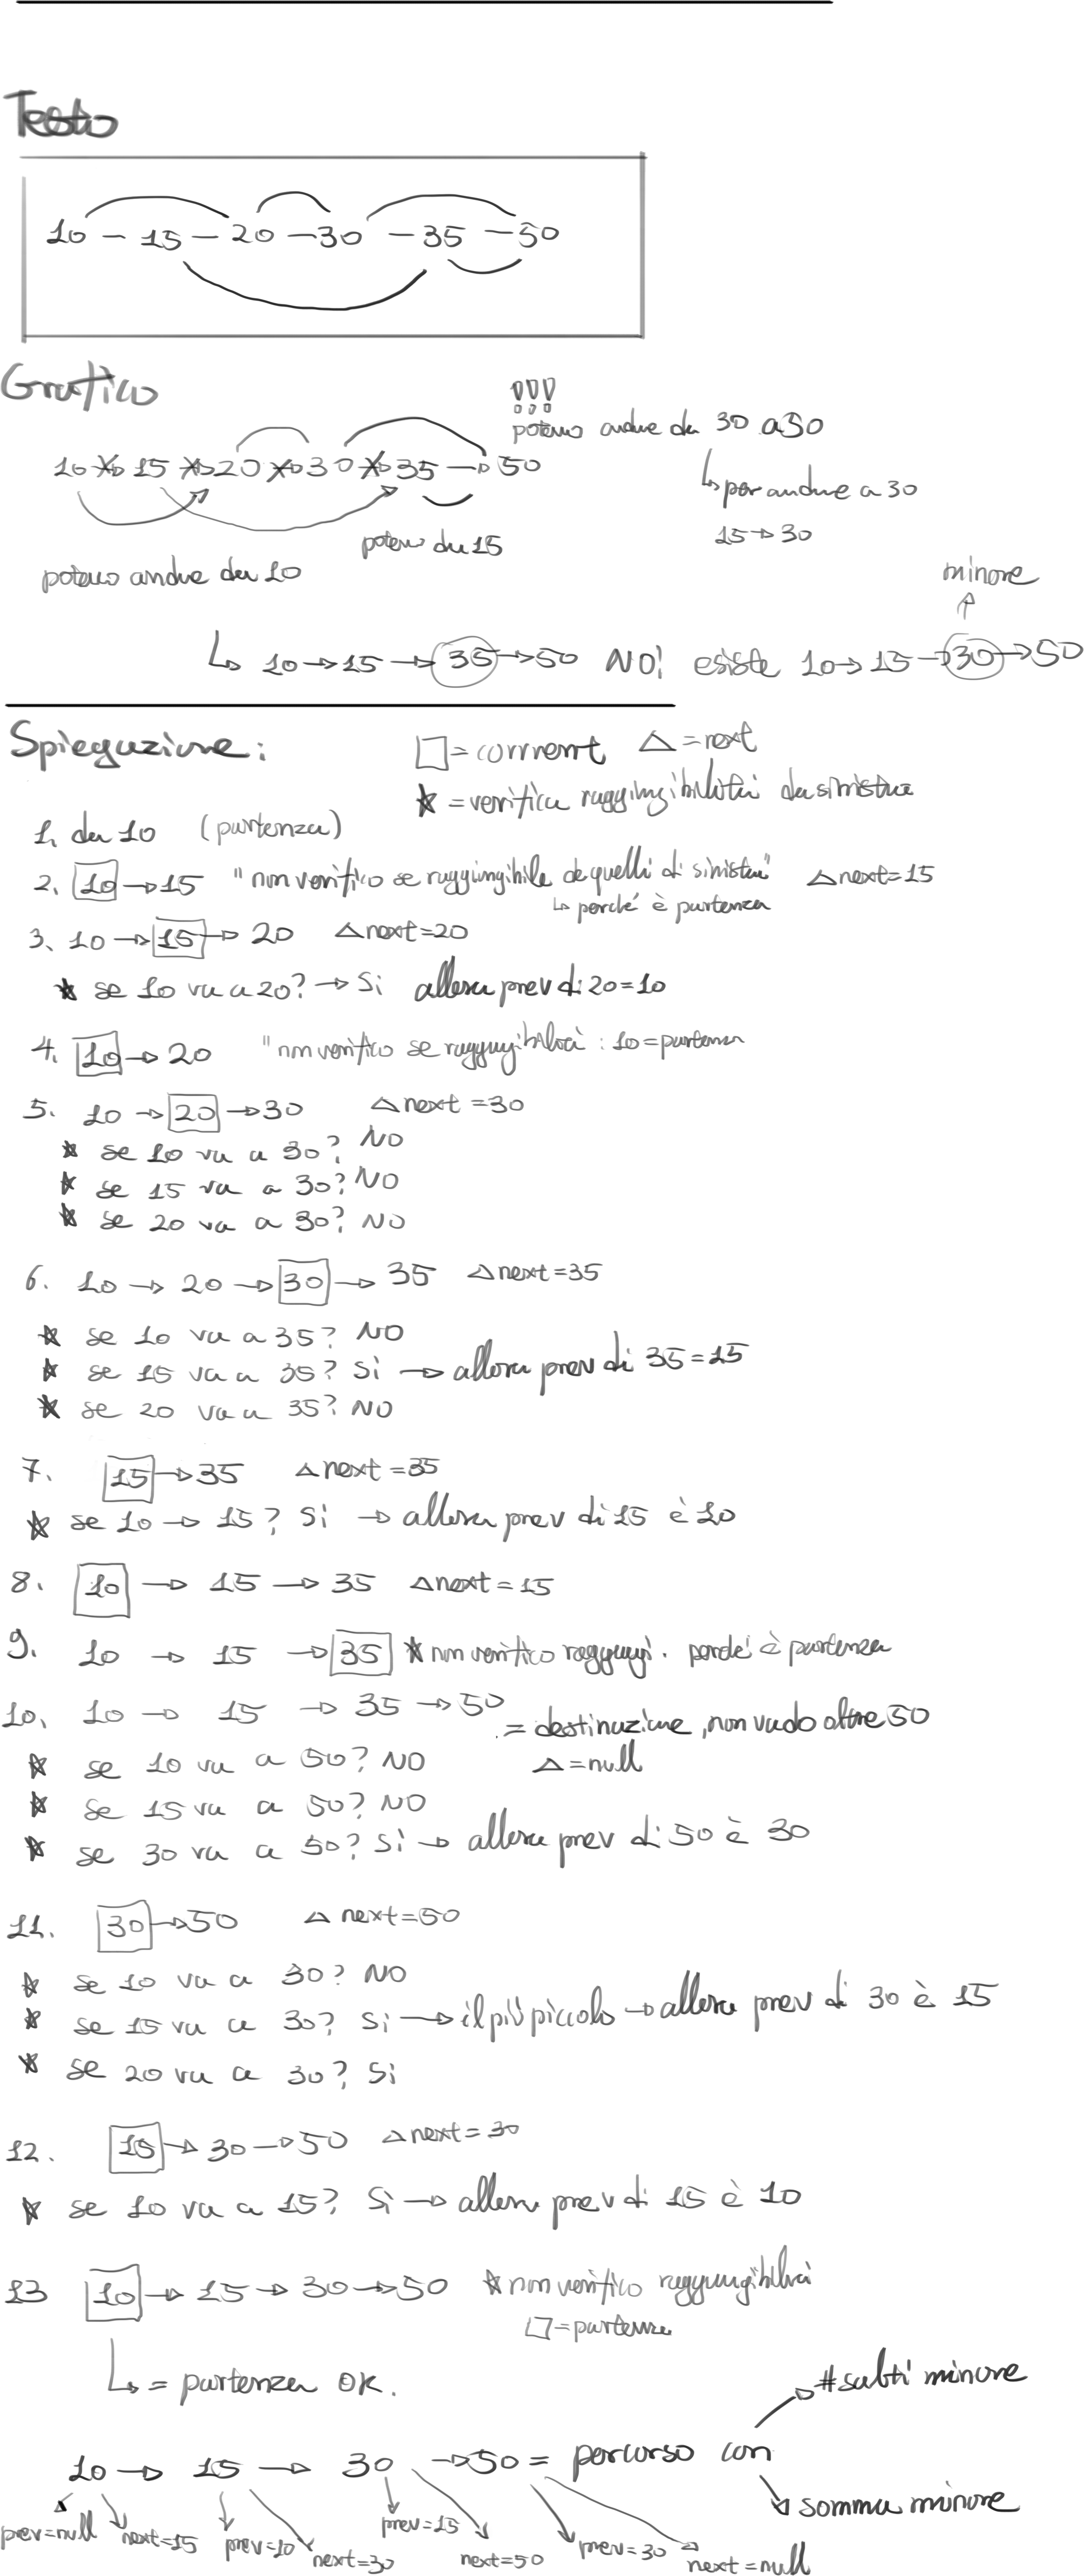 Testo
10 - 15 - 20 - 30 - 35 - 50
Grafico
!!!
potevo andare da 30 a 50
10 → 15 → 20 → 30 → 35 → 50
↳ per andare a 30
15 → 30
potevo da 15
potevo andare da 10
minore
↳ 10 → 15 → 35 → 50 NO! esiste 10 → 15 → 30 → 50
Spiegazione:
□ = current △ = next
★ = verifica raggiungibilità da sinistra
1. da 10 (partenza)
2. 10 → 15 "non verifico se raggiungibile da quelli di sinistra" △ next = 15
↳ perché è partenza
3. 10 → 15 → 20 △ next = 20
★ se 10 va a 20? → Si allora prev di 20 = 10
4. 10 → 20 "non verifico se raggiungibilità: 10 = partenza
5. 10 → 20 → 30 △ next = 30
★ se 10 va a 30? NO
★ se 15 va a 30? NO
★ se 20 va a 30? NO
6. 10 → 20 → 30 → 35 △ next = 35
★ se 10 va a 35? NO
★ se 15 va a 35? Si → allora prev di 35 = 15
★ se 20 va a 35? NO
7. 15 → 35 △ next = 35
★ se 10 → 15? Si → allora prev di 15 è 10
8. 10 → 15 → 35 △ next = 15
9. 10 → 15 → 35 ★ non verifico raggiungi. perché è partenza
10. 10 → 15 → 35 → 50
= destinazione, non vado oltre 50
★ se 10 va a 50? NO △ = null
★ se 15 va a 50? NO
★ se 30 va a 50? Si → allora prev di 50 è 30
11. 30 → 50 △ next = 50
★ se 10 va a 30? NO
★ se 15 va a 30? Si → il più piccolo → allora prev di 30 è 15
★ se 20 va a 30? Si
12. 15 → 30 → 50 △ next = 30
★ se 10 va a 15? Si → allora prev di 15 è 10
13 10 → 15 → 30 → 50 ★ non verifico raggiungibilità
□ = partenza
↳ = partenza OK.
# salti minore
10 → 15 → 30 → 50 = percorso con
somma minore
prev = null next = 15 prev = 10 next = 30 prev = 15 next = 50 prev = 30 next = null